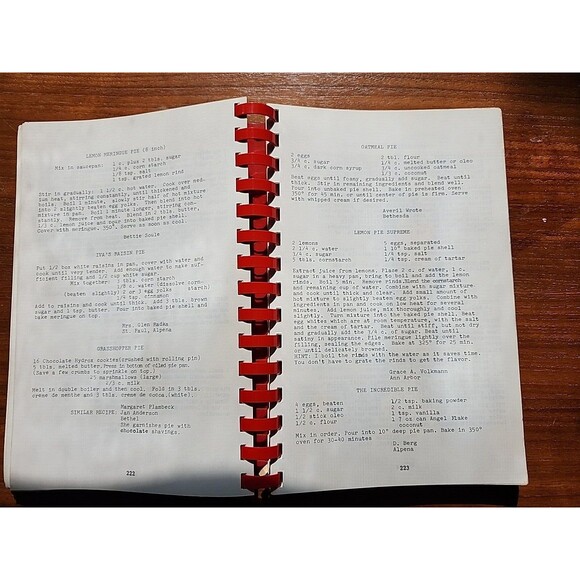 LEMON MERINGUE PIE (8 inch)
Mix in saucepan: 1 c. plus 2 tbls. sugar
1/4 c. corn starch
1/8 tsp. salt
1 tsp. grated lemon rind
Stir in gradually: 1 1/2 c. hot water. Cook over med-
ium heat, stirring constantly, until thickened and
boils. Boil 1 minute, slowly stir half of hot mixture
into 2 slightly beaten egg yolks. Then blend into hot
mixture in pan. Boil 1 minute longer, stirring con-
stantly. Remove from heat. Blend in 2 tbls. butter,
1/3 c. lemon juice and pour into baked pie shell.
Cover with meringue. 350°. Serve as soon as cool.
Bettie Soule
IVA'S RAISIN PIE
Put 1/2 box white raisins in pan, cover with water and
cook until very tender. Add enough water to make suf-
ficient filling and 1/2 cup white sugar.
Mix together: 1 tbls. corn starch
(dissolve corn-
starch)
(beaten slightly) 2 or 3 egg yolks
1/4 tsp. cinnamon
Add to raisins and cook until thick. Add 3 tbls. brown
sugar and 1 tsp. butter. Pour into baked pie shell and
Mrs. Glen Radka
St. Paul, Alpena
GRASSHOPPER PIE
16 Chocolate Hydrox cookies(crushed with rolling pin)
5 tbls. melted butter. Press in bottom of 9" pie pan.
(Save a few crumbs to sprinkle on top.)
25 marshmallows (large)
2/3 c. milk
Melt in double boiler and then cool. Fold in 3 tbls.
creme de menthe and 3 tbls. creme de cocoa.(white).
Margaret Flambeck
SIMILAR RECIPE: Jan Anderson
Bethel
She garnishes pie with
chocolate shavings.
222
OATMEAL PIE
3 eggs 2 tbl. flour
3/4 c. sugar 1/4 c. melted butter or oleo
3/4 c. dark corn syrup 3/4 c. uncooked oatmeal
1/3 c. coconut
Beat eggs until foamy, gradually add sugar. Beat until
thick. Stir in remaining ingredients and blend well.
Pour into unbaked pie shell. Bake in preheated oven
350° for 45 min. or until center of pie is firm. Serve
with whipped cream if desired.
Averil Wrote
Bethesda
LEMON PIE SUPREME
2 lemons 5 eggs, separated
2 1/4 c. water 1 10" baked pie shell
3/4 c. sugar 1/8 tsp. salt
5 tbls. cornstarch 1/4 tsp. cream of tartar
Extract juice from lemons. Place 2 c. of water, 1 c.
sugar in a heavy pan, bring to boil and add the lemon
rinds. Boil 5 min. Remove rinds.Blend the cornstarch
and remaining cup of water. Combine with sugar mixture
and cook until thick and clear. Add small amount of
hot mixture to slightly beaten egg yolks. Combine with
contents in pan and cook on low heat for several
minutes. Add lemon juice, mix thoroughly and cool
slightly. Turn mixture into the baked pie shell. Beat
egg whites which are at room temperature, with the salt
and the cream of tartar. Beat until stiff, but not dry
and gradually add the 3/4 c. of sugar. Beat until
satiny in appearance. Pile meringue lightly over the
filling, sealing the edges. Bake at 325° for 25 min.
or until delicately browned.
HINT: I boil the rinds with the water as it saves time.
You don't have to grate the rinds to get the flavor.
Grace A. Volkmann
Ann Arbor
THE INCREDIBLE PIE
4 eggs, beaten 1/2 tsp. baking powder
1 1/2 c. sugar 2 c. milk
1/2 stick oleo 1 tsp. vanilla
1/2 c. flour 1 7 oz can Angel Flake
coconut
Mix in order. Pour into 10" deep pie pan. Bake in 350°
oven for 30-40 minutes
D. Berg
Alpena
223